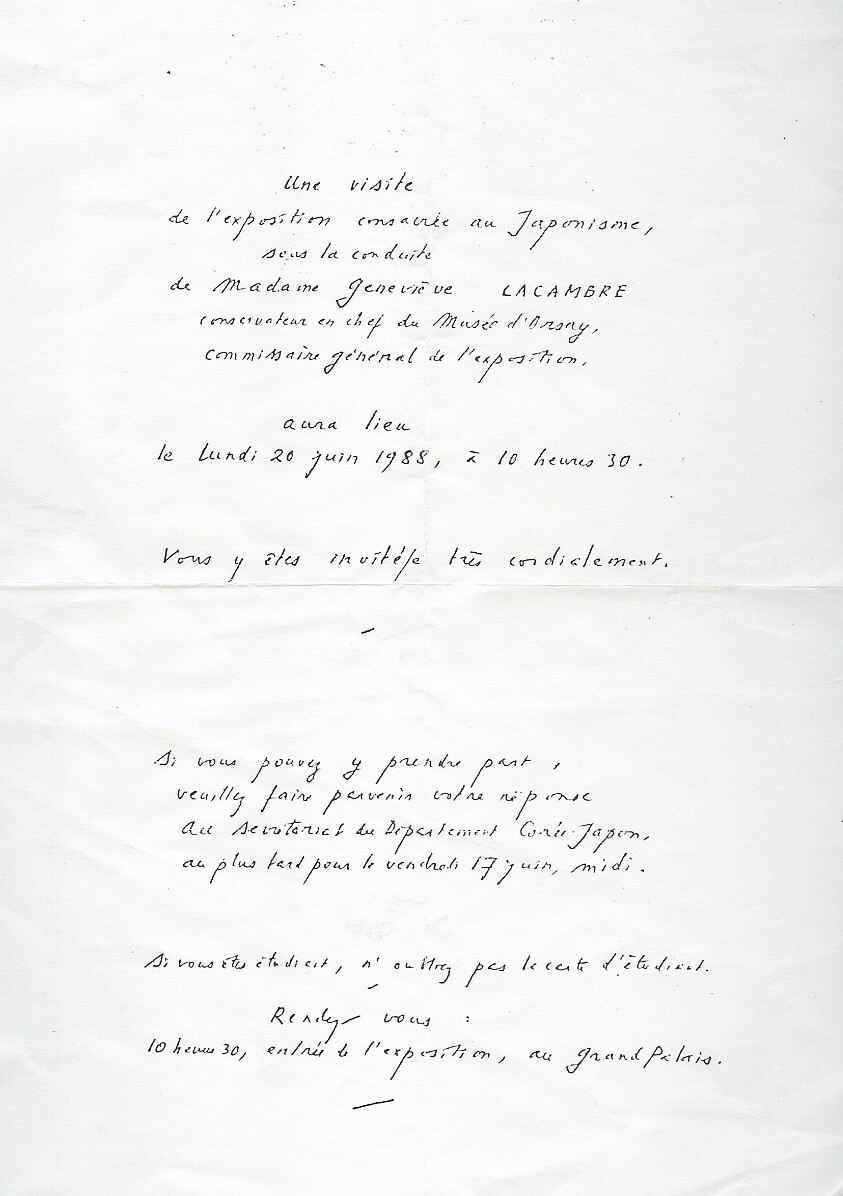 Une visite
de l'exposition consacrée au Japonisme,
sous la conduite
de Madame Geneviève LACAMBRE
conservateur en chef du Musée d'Orsay,
commissaire général de l'exposition,
aura lieu
le lundi 20 juin 1988, à 10 heures 30.
Vous y êtes invité/e très cordialement.
Si vous pouvez y prendre part,
veuillez faire parvenir votre réponse
au secrétariat du Département Corée-Japon,
au plus tard pour le vendredi 17 juin, midi.
Si vous êtes étudiant, n'oubliez pas la carte d'étudiant.
Rendez-vous :
10 heures 30, entrée de l'exposition, au Grand Palais.